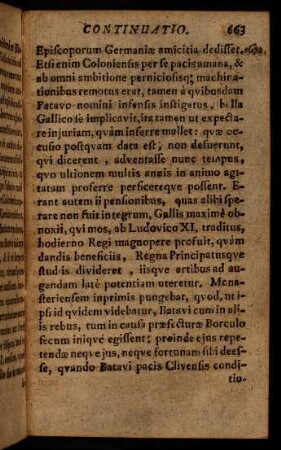 CONTINUATIO. 663
Episcoporum Germaniæ amicitia dedisset.
Etsi enim Coloniensis per se pacis amans, &
ab omni ambitione perniciosisq; machirat
ationibus remotus erat, tamen à qvibusdam
Patavo nomini infensis instigatus, bello
Gallico se implicavit, ita tamen ut expectare
injuriam, qvàm inferre mallet: quæ occusio
postqvam data est, non defuerunt,
qvi dicerent, adventasse nunc tempus,
qvo ultionem multis annis in animo agitatam
proferre perficereqve possent. E-
rant autem ii pensionibus, quas alibi sperare
non fuit in tegrum, Gallis maximè obnoxii,
qvi mos, ab Ludovico XI, traditus,
hodierno Regi magnopere profuit, qvùm
dandis beneficiis, Regna Principatusqve
studiis divideret, iisqve artibus ad augendam
latè potentiam uteretur. Mona-
steriensem inprimis pungebat, qvod, ut i-
psi id qvidem videbatur, Batavi cum in ali-
is rebus, tum in causâ præfecturæ Borculo
secum iniqvè egissent; proinde ejus repe-
tendæ neqve jus, neqve fortunam sibi dees-
se, qvando Batavi pacis Clivensis condi-
tio-